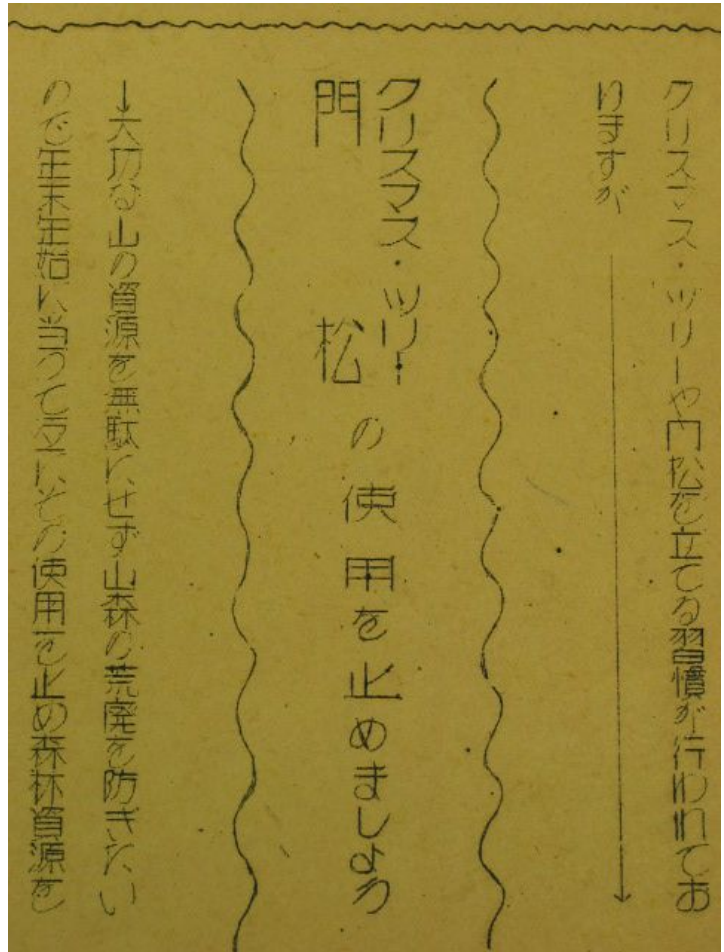 クリスマス・ツリーや門松を立てる習慣が行われてお
りますが
クリスマス・ツリー
門松
の使用を止めましょう
大切な山の資源を無駄にせず山森の荒廃を防ぎたい
ので年末年始に当って互にその使用を止め森林資源を